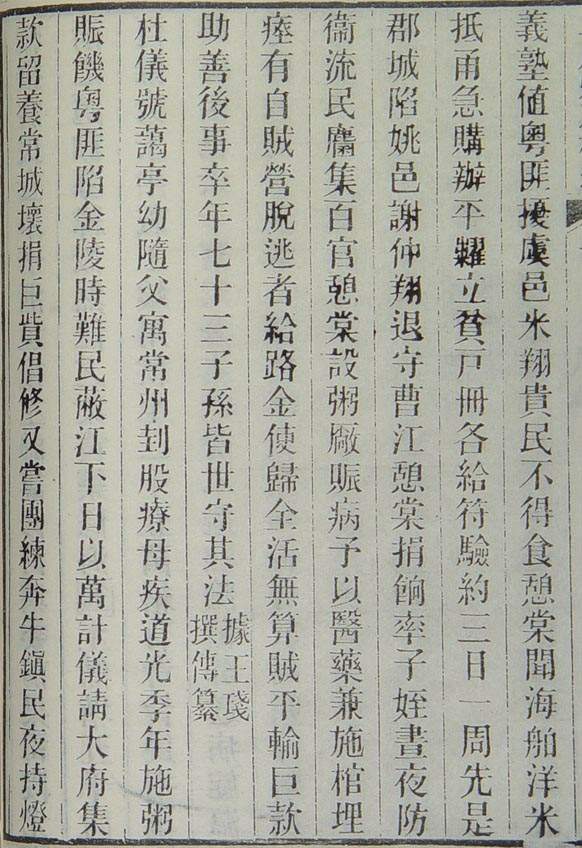 義塾値粵匪擾虞邑米翔貴民不得食憩棠聞海舶洋米
抵甬急購辦平糶立貧戸冊各給符驗約三日一周先是
郡城陷姚邑謝仲翔退守曹江憩棠捐餉率子姪晝夜防
衞流民麕集百官憩棠設粥厰賑病予以醫藥兼施棺埋
瘞有自賊營脫逃者給路金使歸全活無算賊平輸巨款
助善後事卒年七十三子孫皆世守其法據王琖撰傳纂
杜儀號藹亭幼隨父寓常州刲股療母疾道光季年施粥
賑饑粵匪陷金陵時難民蔽江下日以萬計儀請大府集
款留養常城壞捐巨貲倡修又嘗團練奔牛鎮民夜持燈